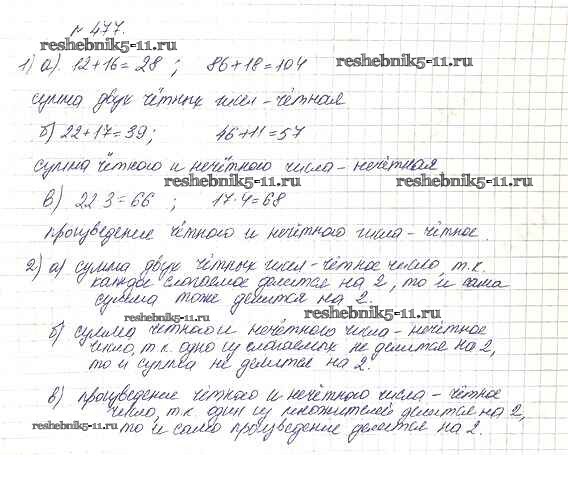 № 477.
reshebnik5-11.ru
1) а). 12+16=28 ; 86+18=104 reshebnik5-11.ru
сумма двух чётных чисел - чётная
б) 22+17=39; 46+11=57
сумма чётного и нечётного числа - нечётная
reshebnik5-11.ru reshebnik5-11.ru
в) 22·3=66 ; 17·4=68
произведение чётного и нечётного числа - чётное.
2) а) сумма двух чётных чисел - чётное число, т.к.
каждое слагаемое делится на 2, то и сама
сумма тоже делится на 2.
reshebnik5-11.ru reshebnik5-11.ru
б) сумма чётного и нечётного числа - нечётное
число, т.к. одно из слагаемых не делится на 2,
то и сумма не делится на 2.
в) произведение чётного и нечётного числа - чётное
число, т.к. один из множителей делится на 2,
reshebnik5-11.ru то и само произведение делится на 2.